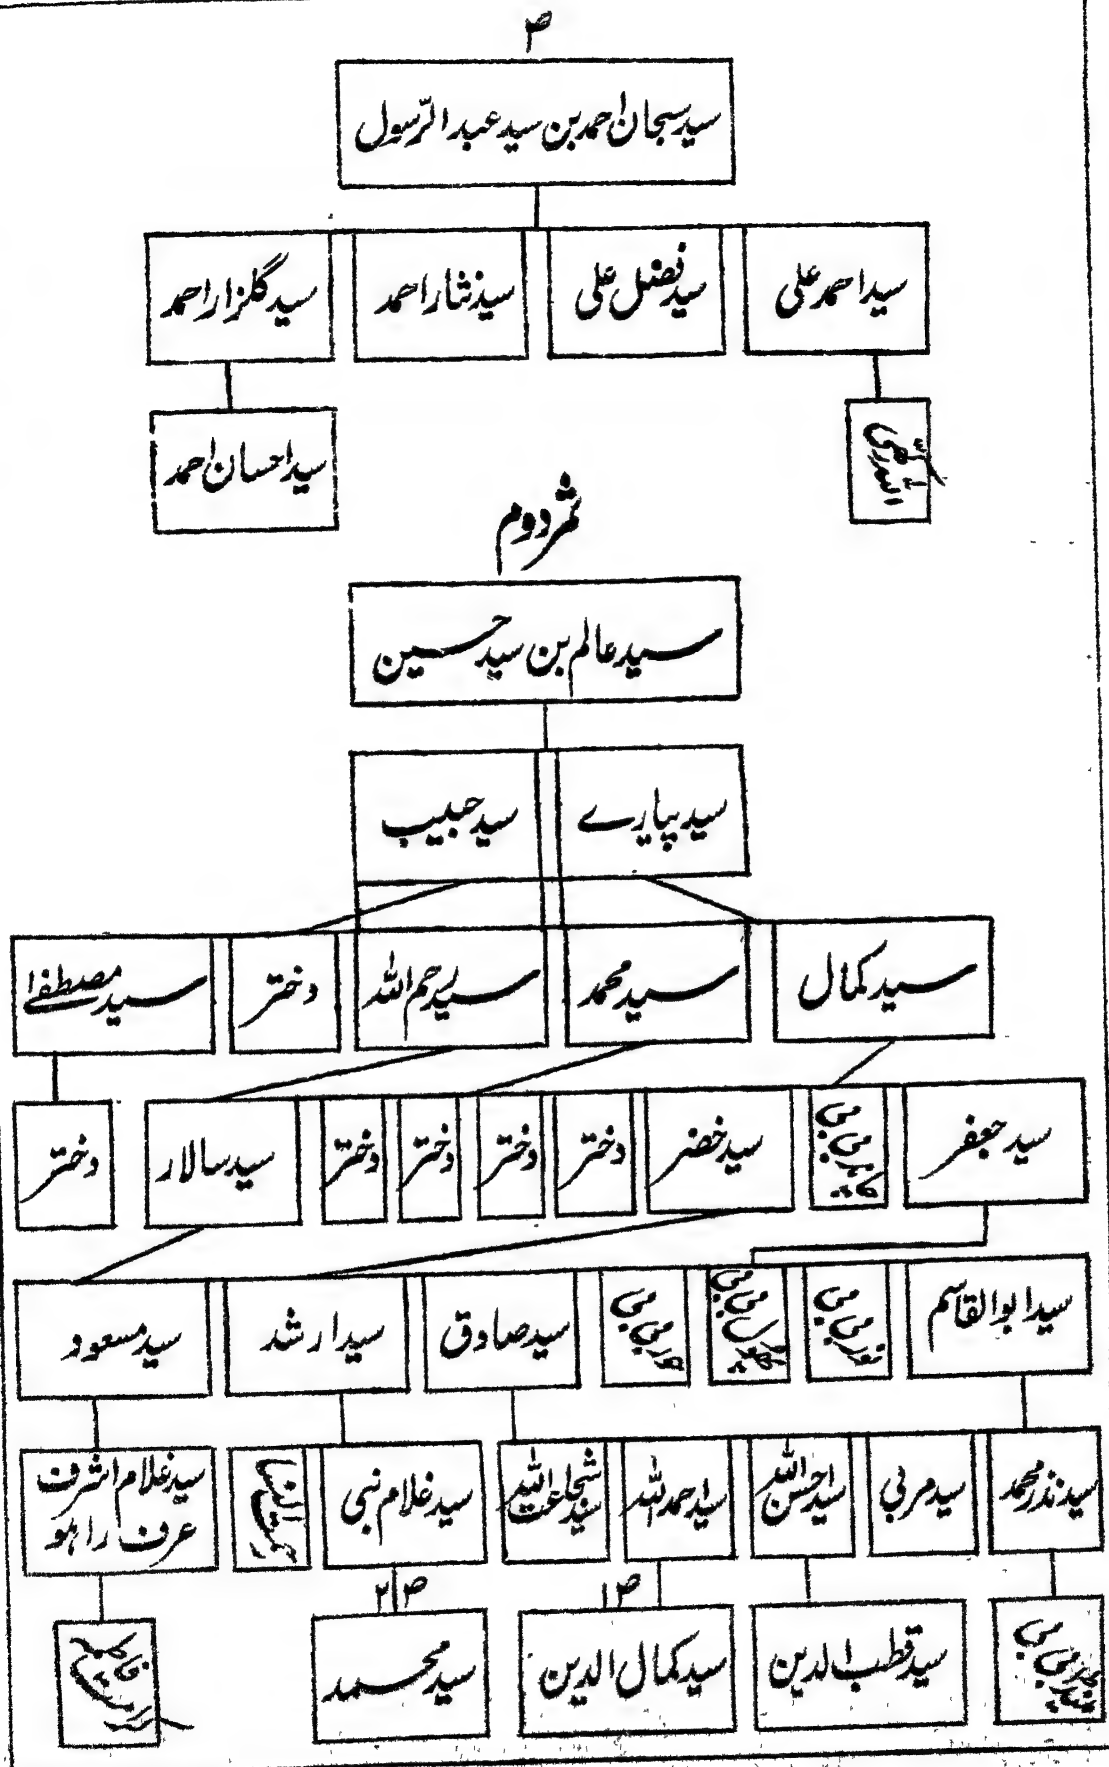 ص
سید سبحان احمد بن سید عبد الرّسول
سید احمد علی
سید فضل علی
سید نثار احمد
سید گلزار احمد
سید احسان احمد
ثمر دوم
سید عالم بن سید حسین
سید پیارے
سید حبیب
سید کمال
سید محمد
سید رحم اللہ
دختر
سید مصطفےٰ
سید جعفر
بی بی
سید خضر
دختر
دختر
دختر
دختر
سید سالار
دختر
سید ابوالقاسم
نور بی بی
بی بی
بی بی
سید صادق
سید ارشد
سید مسعود
سید نذر محمد
سید مربی
سید احسن اللہ
سید احمد اللہ
سید شجاعت اللہ
سید غلام نبی
سید غلام اشرف
عرف راہو
ص ۱
ص ۲
بی بی
سید قطب الدین
سید کمال الدین
سید محمد
فاطمہ